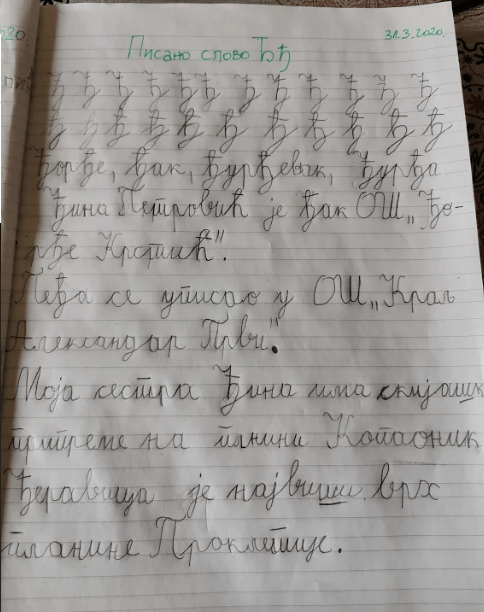 31.3.2020.
Писано слово Ђђ
Ђ Ђ Ђ Ђ Ђ Ђ Ђ Ђ Ђ Ђ Ђ Ђ
ђ ђ ђ ђ ђ ђ ђ ђ ђ ђ ђ ђ
Ђорђе, ђак, ђурђевак, Ђурђа
Ђина Петровић је ђак ОШ „Ђо-
рђе Крстић".
Пеђа се уписао у ОШ „Краљ
Александар Први".
Моја сестра Ђина има скијашк
припреме на планини Копаоник
Ђеравица је највиши врх
планине Проклетије.